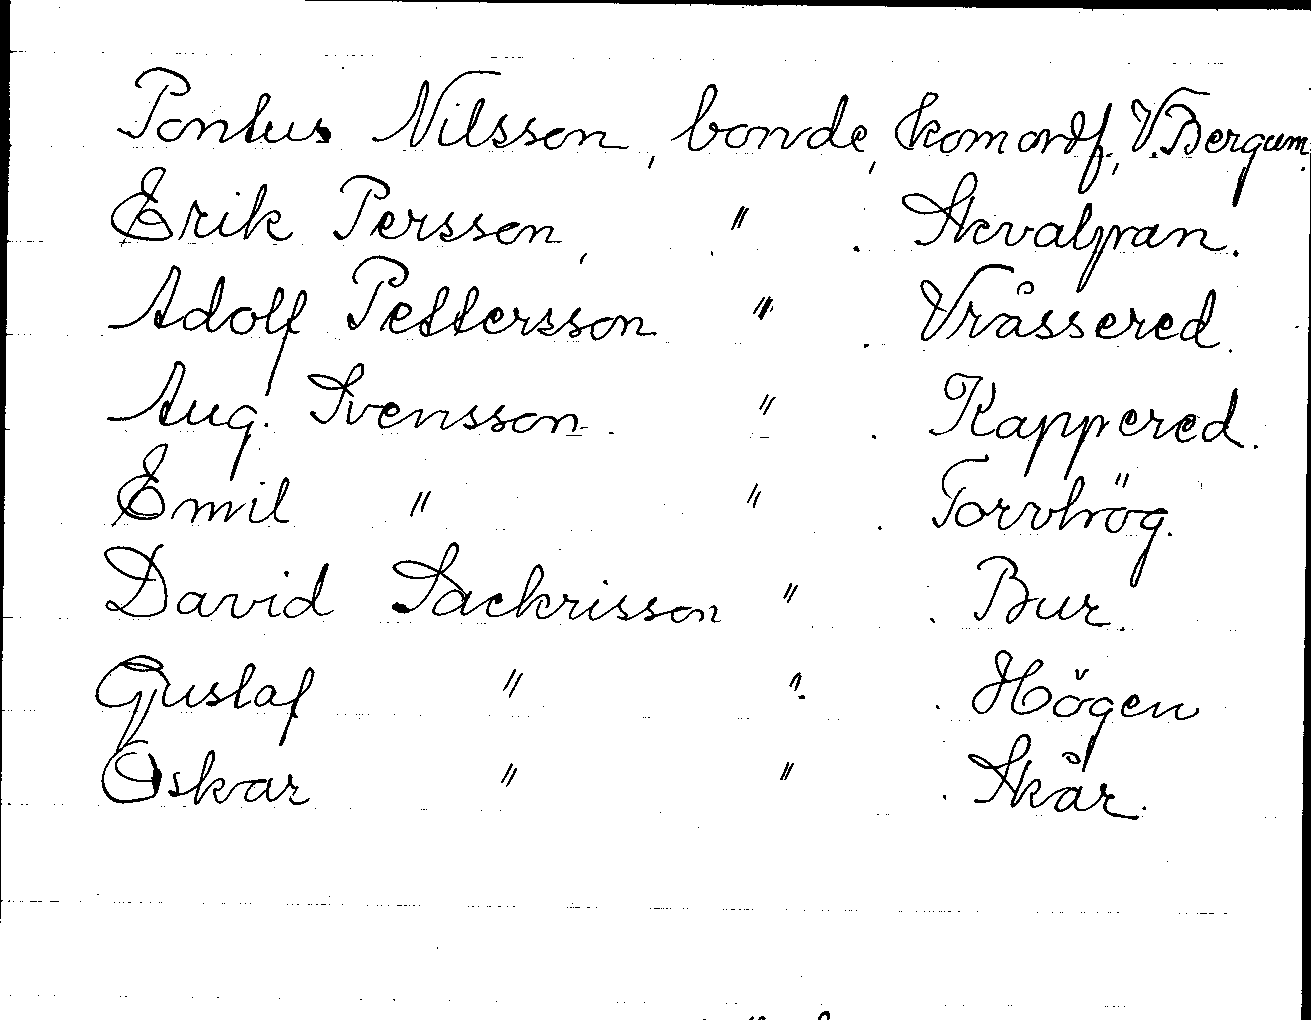 Pontus Nilsson, bonde, komordf., V. Bergum.
Erik Persson, " . Skvalpan.
Adolf Pettersson " . Vråssered.
Aug. Svensson. " . Kappered.
Emil " " . Torvhög.
David Sackrisson " . Bur.
Gustaf " " . Högen
Oskar " " . Skår.